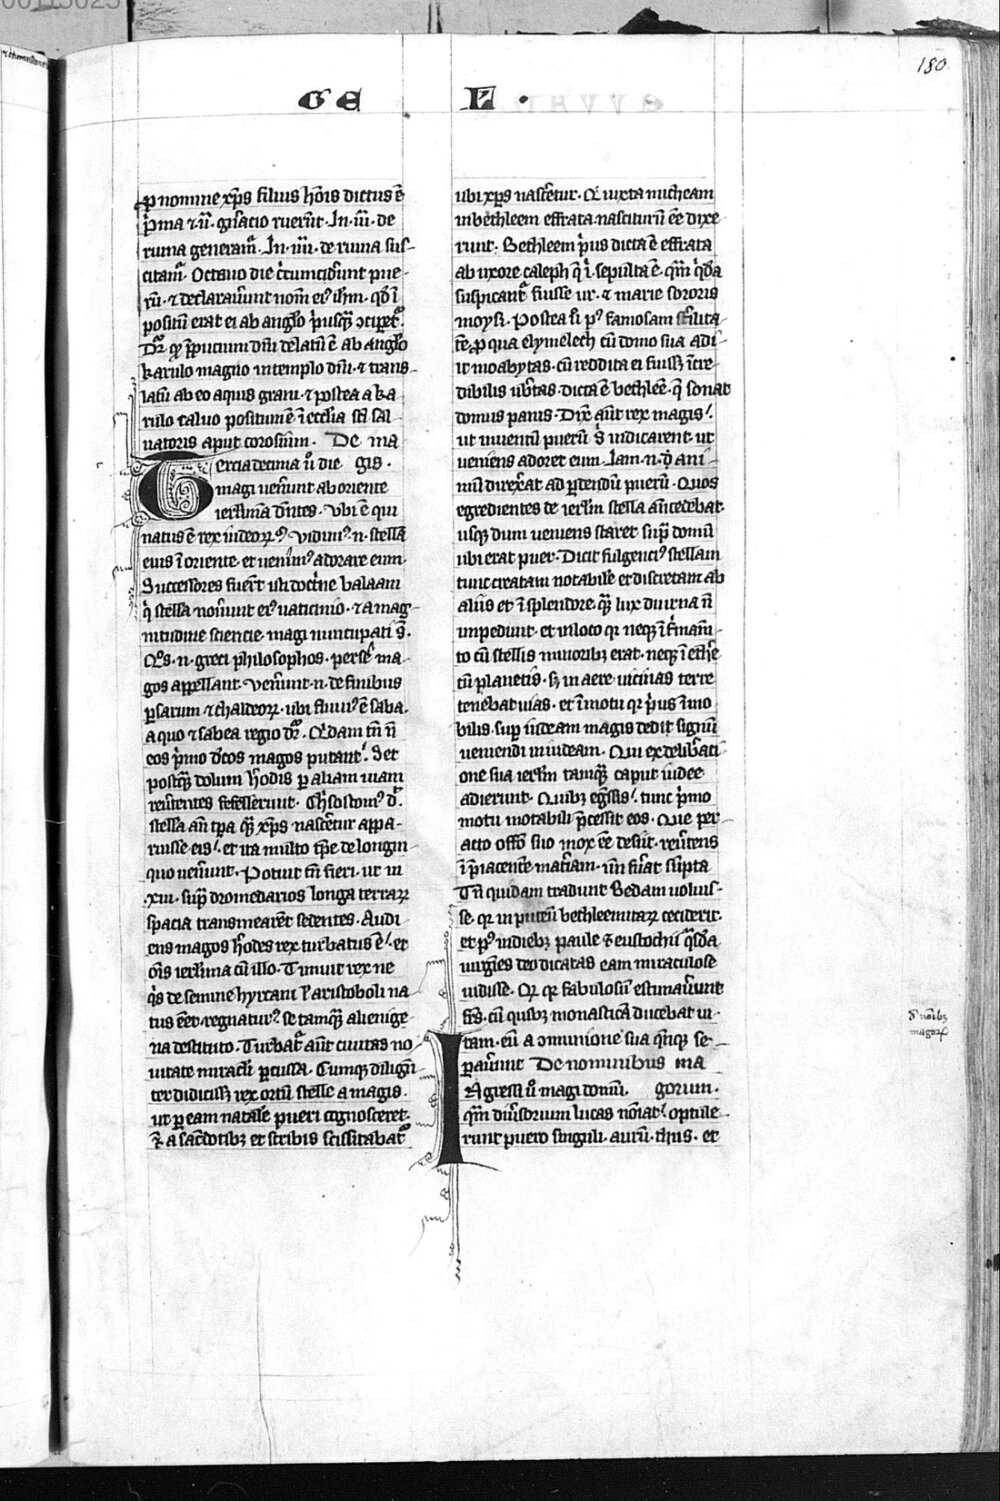 180
GE L .
p nomine xp̄s filius hōis dictus ē
p̄ma ⁊ .ii. gn̄acio ruerūt. In .iii. de
ruina generam̄. In .iiii. de ruina sus-
citam̄. Octauo die c̄rumcid̄unt pue-
rū. ⁊ declarau̾unt nom̄ ei᷒ ih̄m. qd̓ ī
positū erat ei ab angl̓o p̓usq̄ ꝯciperet᷑.
Dr̄ ꝙ p̄puciū dn̄i delatū ē ab anglo
karulo magno in templo dn̄i. ⁊ trans-
latū ab eo aquis grani. ⁊ postea a ka
rulo caluo positum ē ī ecc̄lia sc̄i sal-
uatoris aput corosium. De ma
Tercia decima ū die gis.
magi uen̄unt ab oriente
ier̄l̄imā d̄ntes. Vbi ē qui
natus ē rex iudeoꝝ? Vidim᷒ .n. stellā
eius ī oriente. et uenim᷒ adorare eum.
Successores fuer̄t isti doct̄ne balaam
q̓ stellā nou̾unt ei᷒ uaticinio. ⁊ a mag-
nitudine sciencie magi nuncupati s̄.
Qͦs .n. greci philosophos. perse ma-
gos appellant. Ven̄unt .n. de finibus
ꝑsarum ⁊ chaldeoꝝ. ubi fluui᷒ ē saba.
a quo ⁊ sabea regio dr̄. Qͥdam tn̄ n̄
eos p̓mo d̄cos magos putant. Set
postq̄ dolum h̓odis ꝑ aliam uiam
reu̾tentes fefellerunt. Cⁱsostom᷒ d̄.
stella an̄ tp̄a q̄ xp̄s nascēr̄etur appa-
ruisse eis. et ita multo tp̄e de longin
quo uen̄unt. Potuit tn̄ fieri. ut in
.xiii. sup̄ dromedarios longa terraꝝ
spacia transmearēt sedentes. Audi-
ens magos h̓odes rex turbatus ē. et
om̄s ier̄l̄ima cū illo. Timuit rex ne
q̓s de semine hyrcani ł aristoboli na
tus ēet regnatur᷒. se tamq̄ alienige-
na destituto. Turbat᷑ aūt ciuitas no-
uitate miracl̄i ꝑcussa. Cumq; diligēn-
ter didicissꝫ rex ortū stelle a magis.
ut ꝑ eam natale pueri cognosceret.
a sac̄dotibꝫ et scribis sciscitabat᷑
ubi xp̄s nascēretur. Qͥ iuxta micheam
in bethleem effrata nasciturū ēe dixe-
runt. Bethleem p̓us dicta ē effrata
ab uxore caleph q̄ ī. sepulta ē. qm̄ qͥdā
suspicant᷑ fuisse ur. ⁊ marie sororis
moysi. Postea ū p᷒ famosam sterilita-
tē. ꝓ qua elymelech cū domo sua adi-
it moabytas. cū reddita ei fuissꝫ īcre-
dibilis ub̓tas. dicta ē bethleē. q̄ sonat
domus panis. Dix̄ aūt rex magis.
ut inuentū puerū s̓ indicarent. ut
ueniens adoret eum. Iam .n. ꝙ ani-
mū direx̓at ad ꝑdendū puerū. Quos
egredientes de ier̄l̄m stella antecedebat.
usq; dum ueniens staret sup̄ domū
ubi erat puer. Dicit fulgenci᷒ stellam
tunc creatam notabile et discretam ab
aliis et ī splendore. q̄ lux diurna n̄
impediuit. et in loco qr neq; ī firmam̄-
to cū stellis minoribꝫ erat. neq; ī ethe
cū planetis. sꝫ in aere uicinas terre
tenebat uias. et ī motu qr p̓us īmo
bilis. sup̄ iudeam magis dedit signū
ueniendi in iudeam. Qui ex delib̓ati
one sua ier̄l̄m tamq̄ caput iudee
adierunt. Quibꝫ eg̓ssis. tunc p̓mo
motu notabili p̄cessit eos. Que per-
acto off̄o suo mox ēe desiit. reu̾tens
ī p̓iacente mat̄iam. un̄ fu̾at sūpta
Tn̄ quidam tradunt Bedam uoluis-
se. qr in puteū bethleemitaꝝ ceciderit.
et p᷒ in diebꝫ paule ⁊ eustochii qͥsdā
uirgines deo dicatas eam miraculose
uidisse. Qͥ qr fabulosū estimau̾unt
fr̄s. cū quibꝫ monasticā ducebat ui-
tam. eū a ꝯmunione sua q̄ntq; se-
parau̾unt De nominibus ma
Ingressi ū magi domū. gorum.
qm̄ diu̾sorium lucas noīat. optule-
runt puero singuli. aurū. thus. et
d̓ noībꝫ
magoꝝ